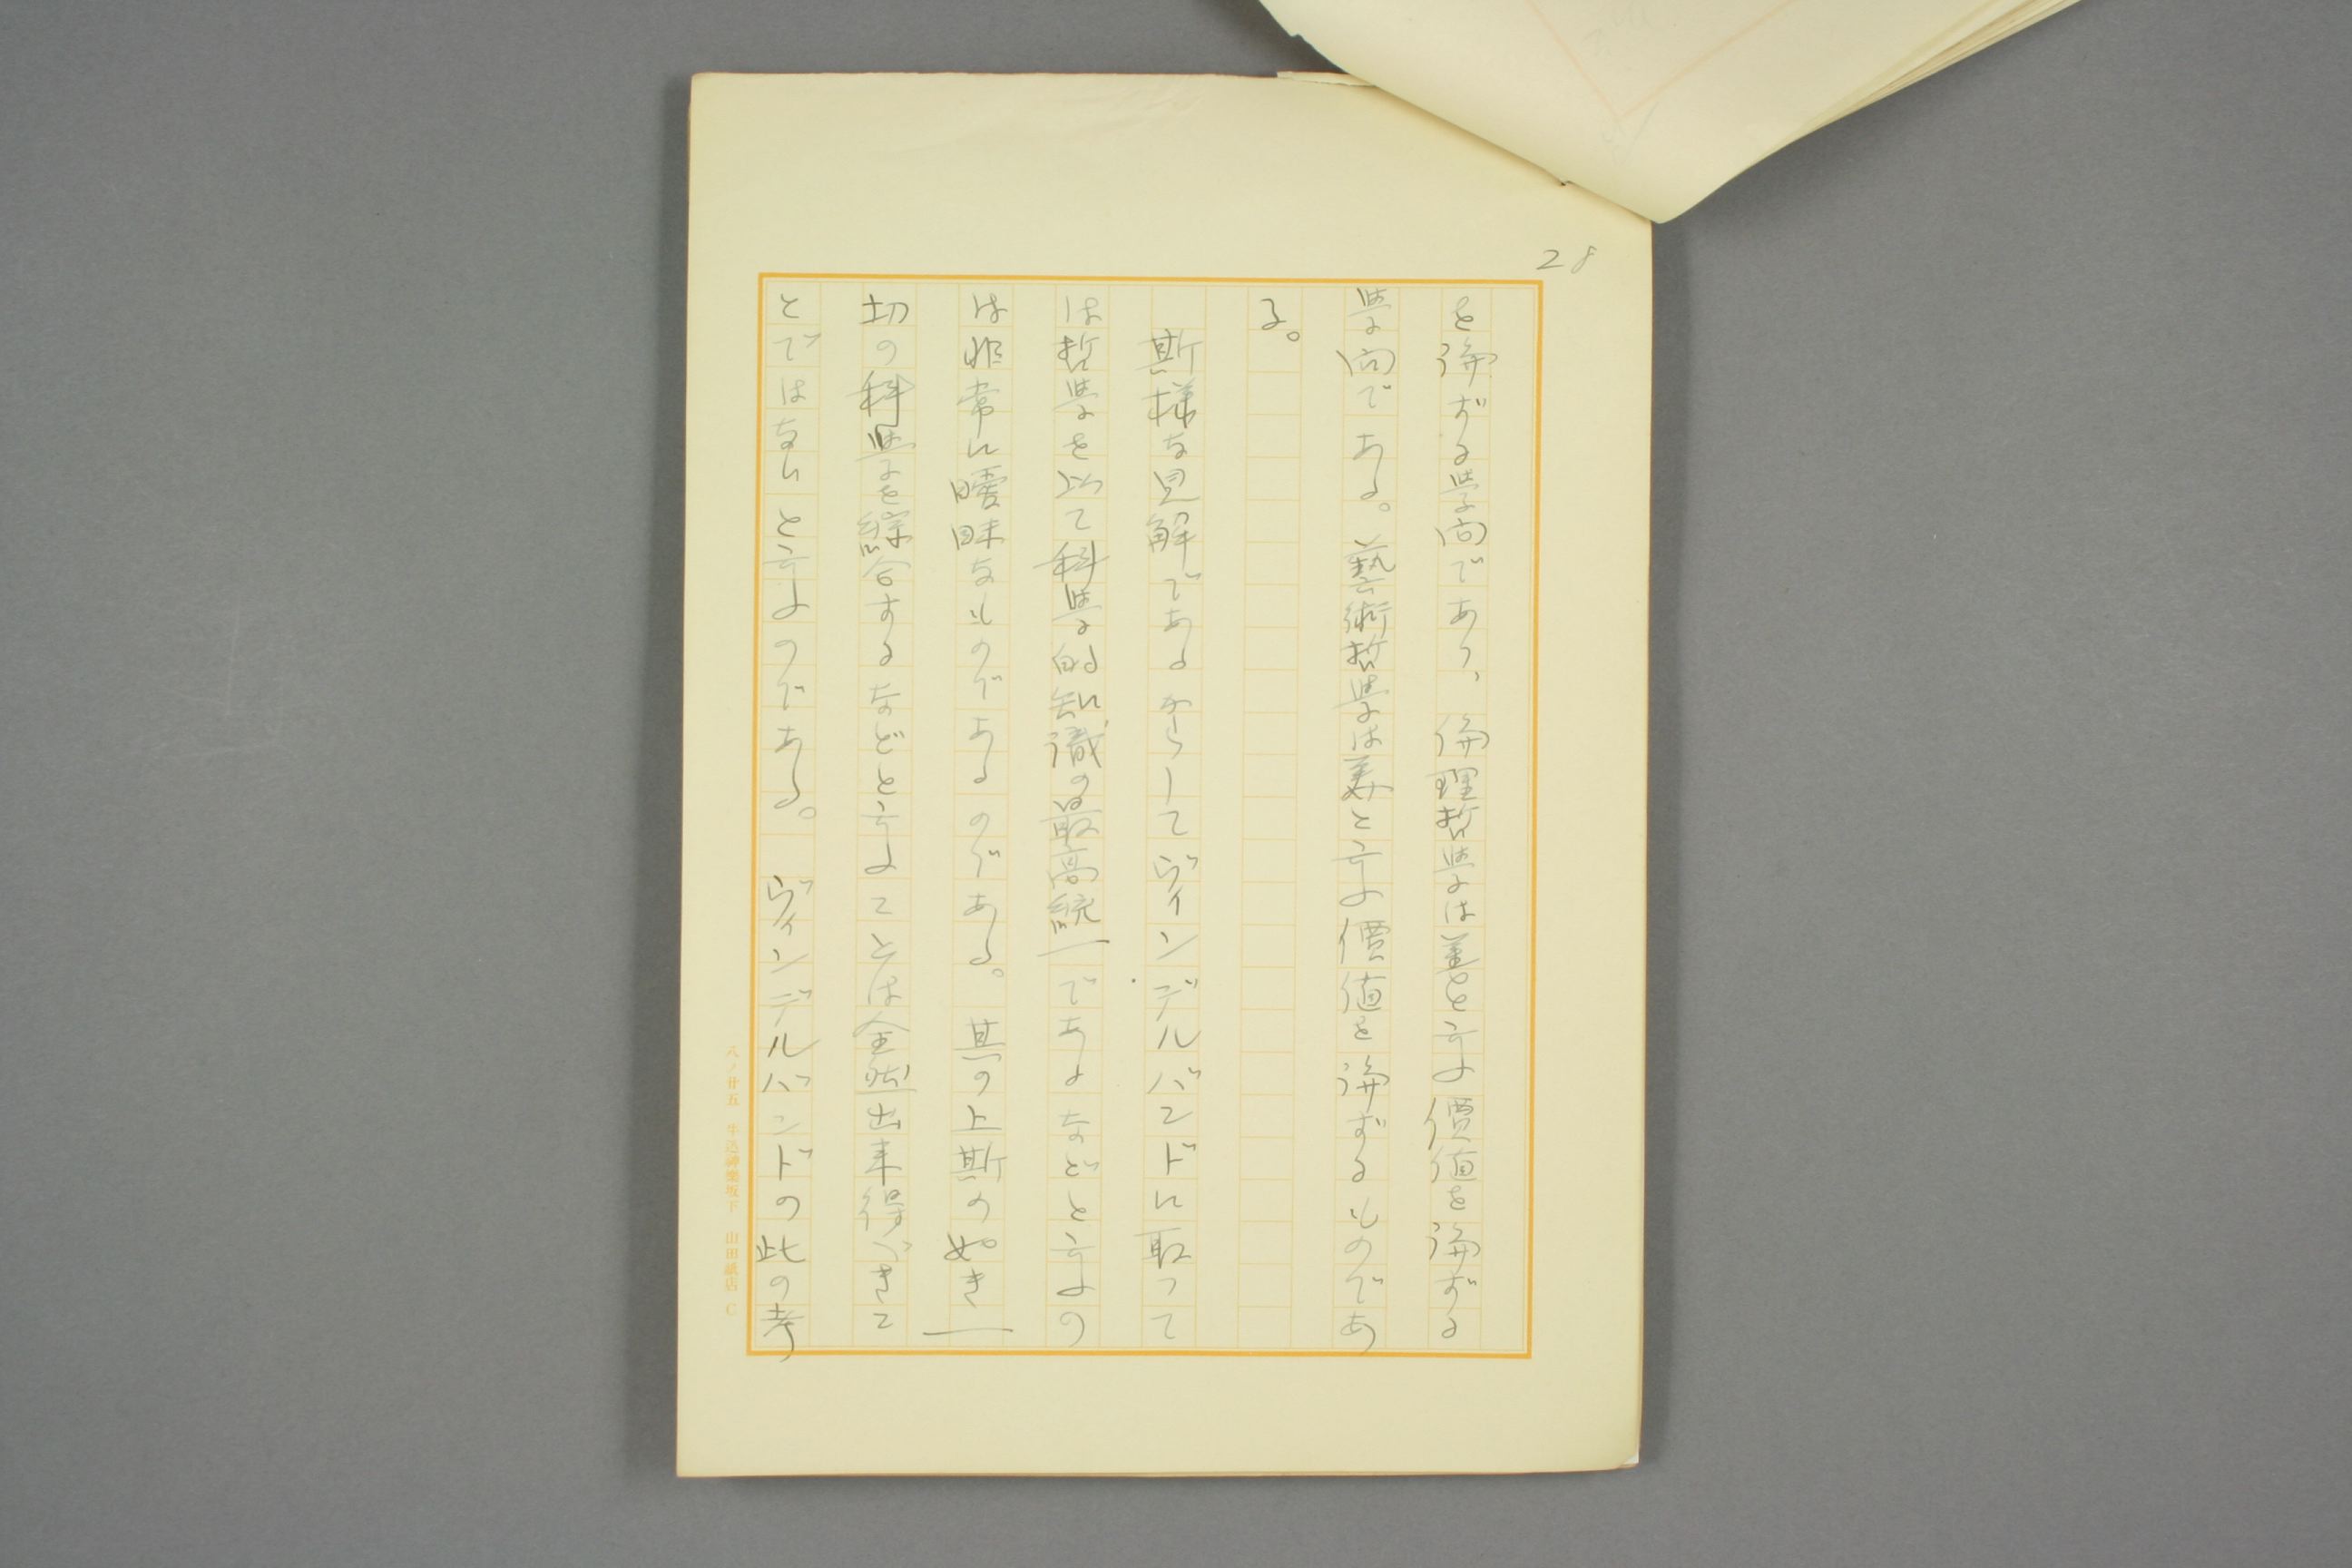 28
を論ずる學問であり、倫理哲學は善と云ふ價値を論ずる
學問である。藝術哲學は美と云ふ價値を論ずるものであ
る。
斯樣な見解であるからしてヴィンデルバンドに取って
は哲學を以て科學的知識の最高統一であるなどと云ふの
は非常に曖昧なものであるのである。其の上斯の如き一
切の科學を綜合するなどと云ふことは全然出来得べきこ
とではないと云ふのである。ヴィンデルバンドの此の考
八ノ廿五 牛込神樂坂下 山田紙店 C